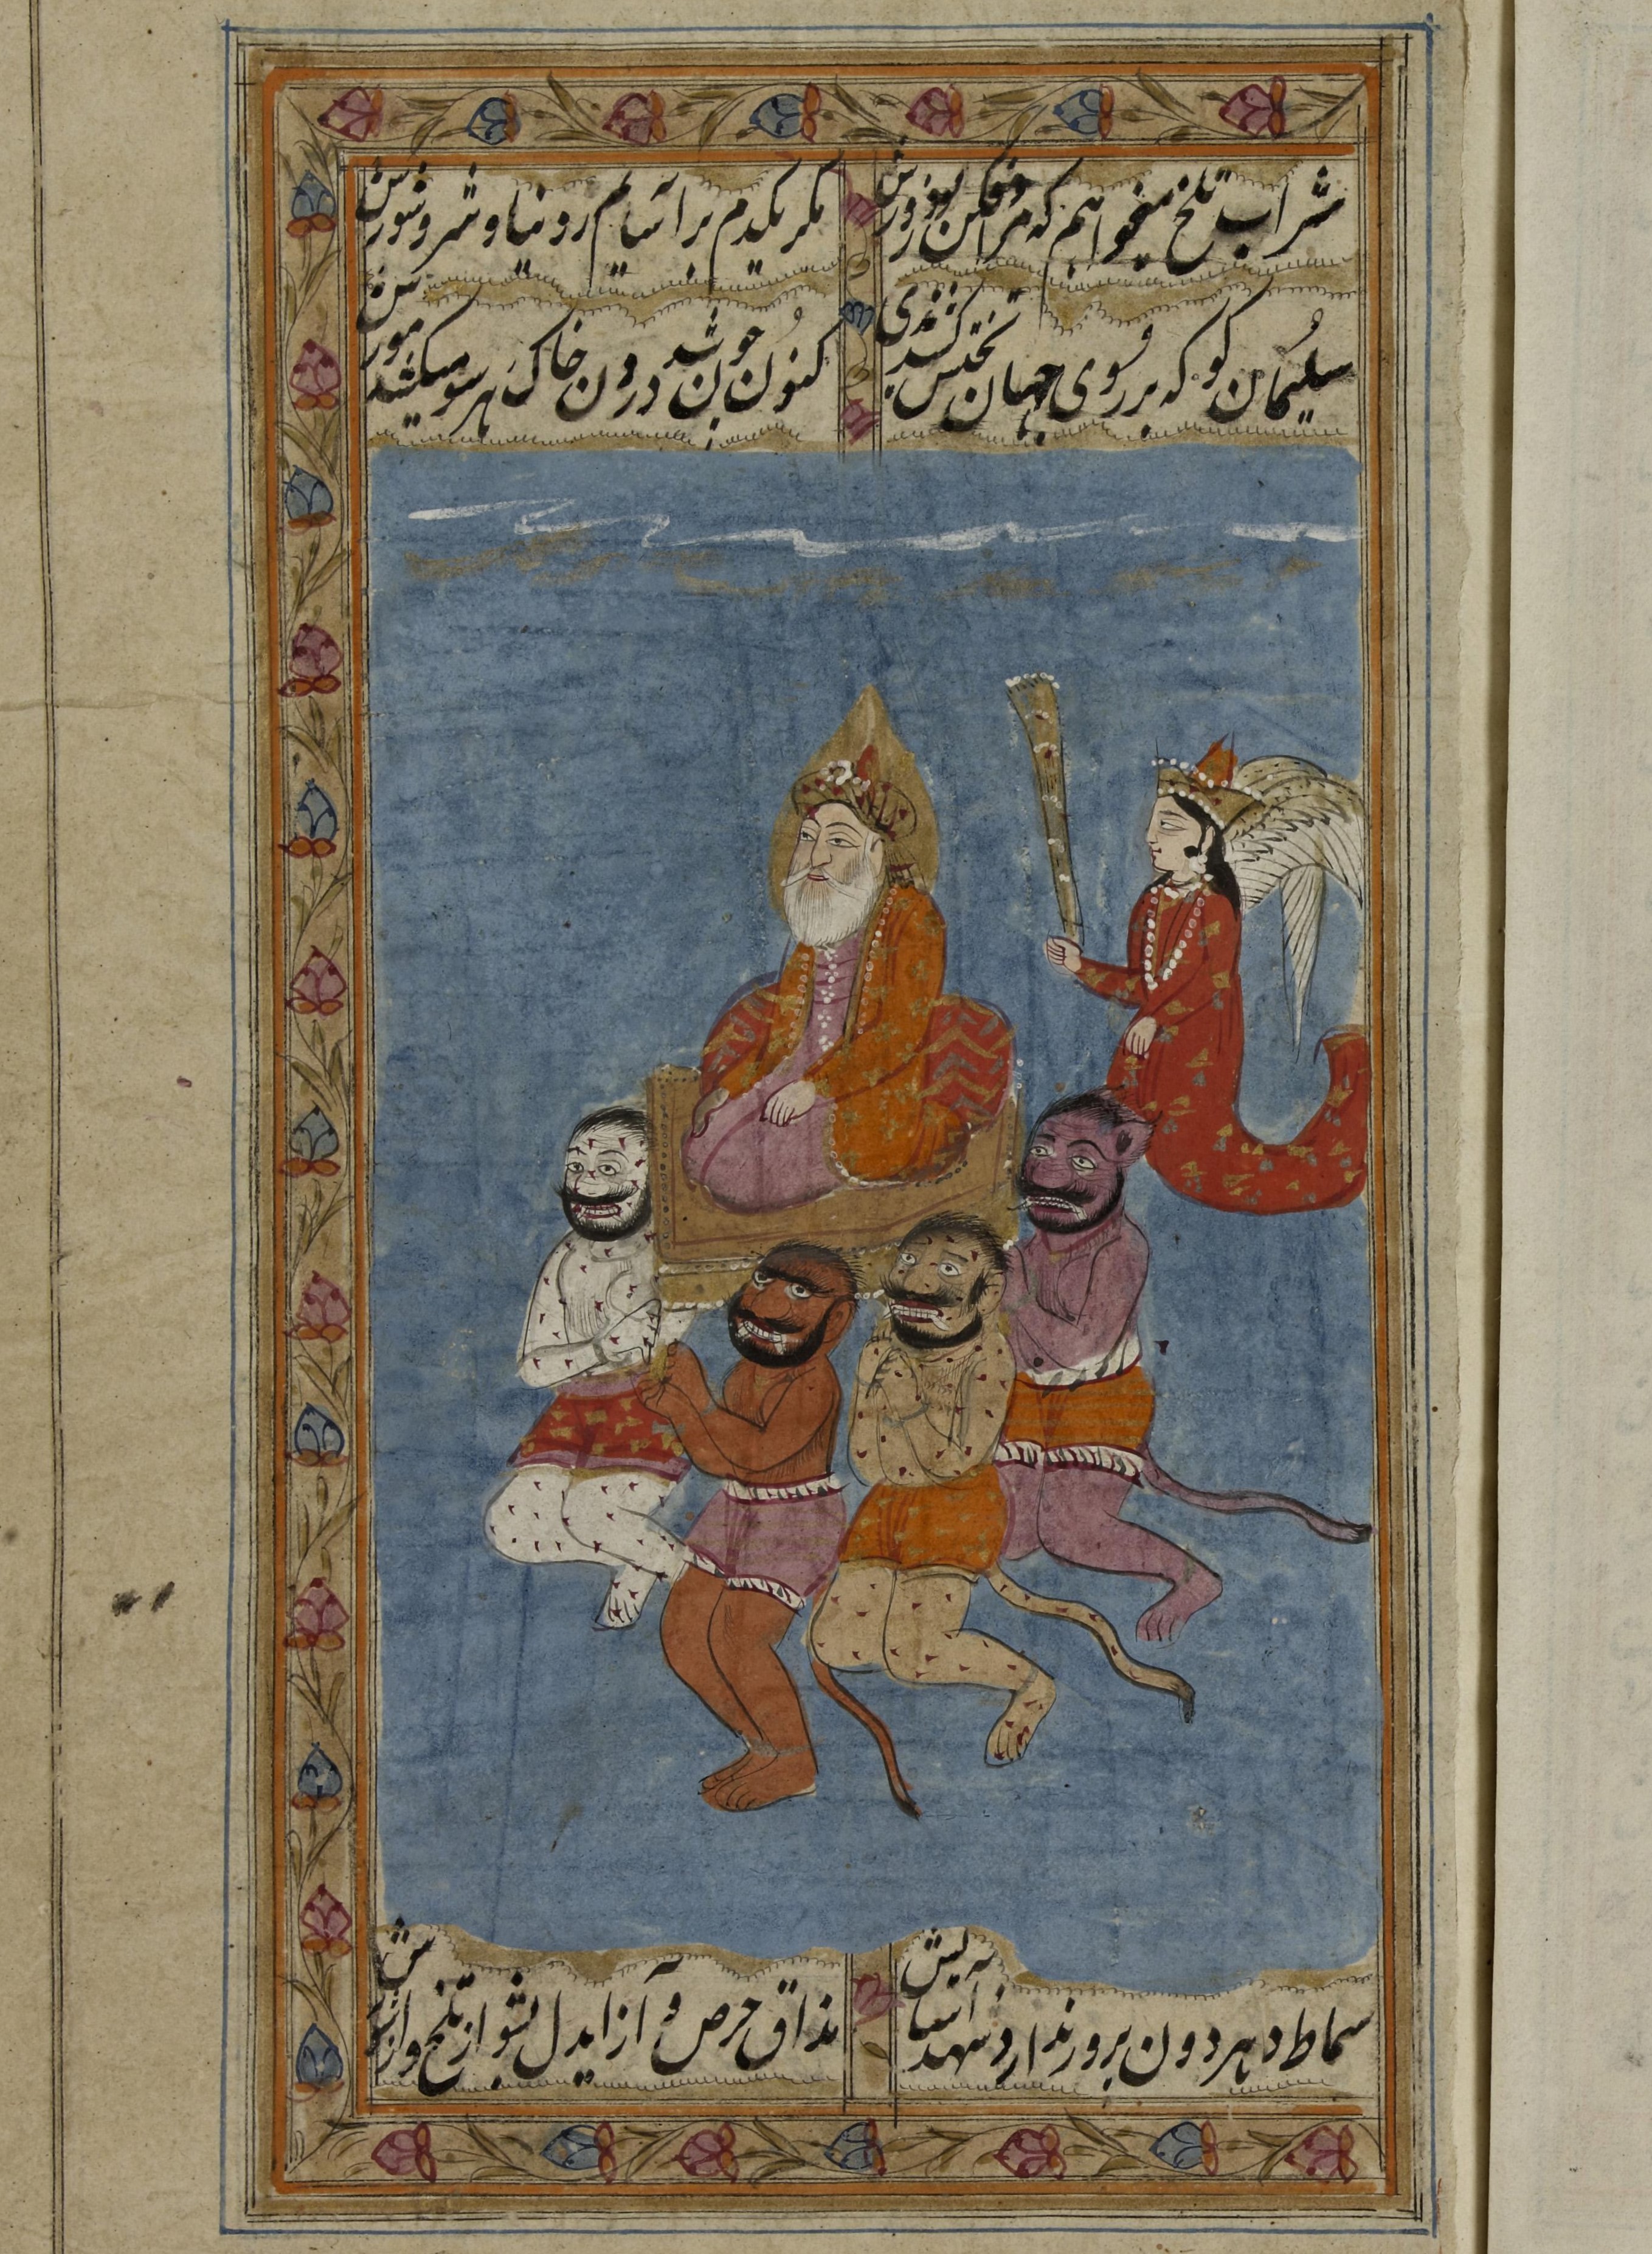 شراب تلخ میخواهم که مرد افکن بود زورش
مگر یکدم برآسایم ز دنیا و شر و شورش
سلیمان کو که بر روی جهان تختش کشیدندی
کنون چون شد درون خاک هر سو میکشد مورش
سماط دهر دون پرور ندارد شهد آسایش
مذاق حرص و آز ایدل بشو از تلخ و از شورش